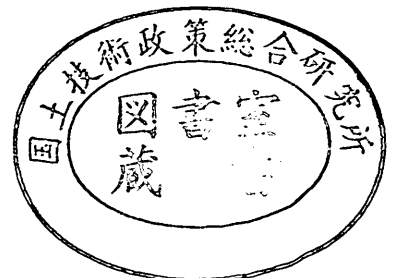 国土技術政策総合研究所
図書室
蔵